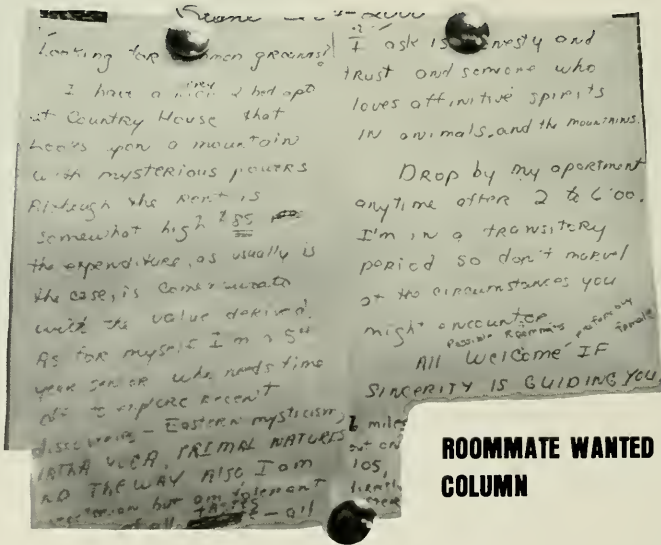 Looking for common grounds?
I have a 2 bed apt
at Country House that
looks upon a mountain
with mysterious powers
Although the rent is
somewhat high $85
the expenditure, as usually is
the case, is commensurate
with the value derived.
As for myself I'm a 5th
year senior who needs time
to explore recent
discoveries - Eastern mysticism,
PRIMAL NATURES
THE WAY Also I am
but am tolerant
of all - all
I ask is honesty and
trust and someone who
loves affinitive spirits
IN animals, and the mountains.
DROP by my apartment
anytime after 2 to 6:00.
I'm in a transitory
period so don't marvel
at the circumstances you
might encounter
Possible Roommates preferably female
All Welcome IF
SINCERITY IS GUIDING YOU
2 miles
out on
105,
ROOMMATE WANTED
COLUMN